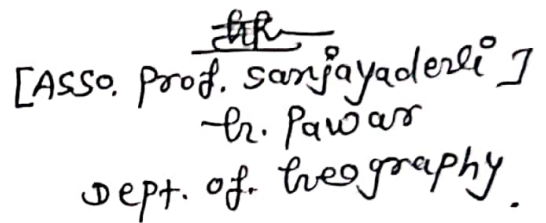 [Asso. Prof. Sanjayadevi]
G. Pawar
Dept. of. Geography.